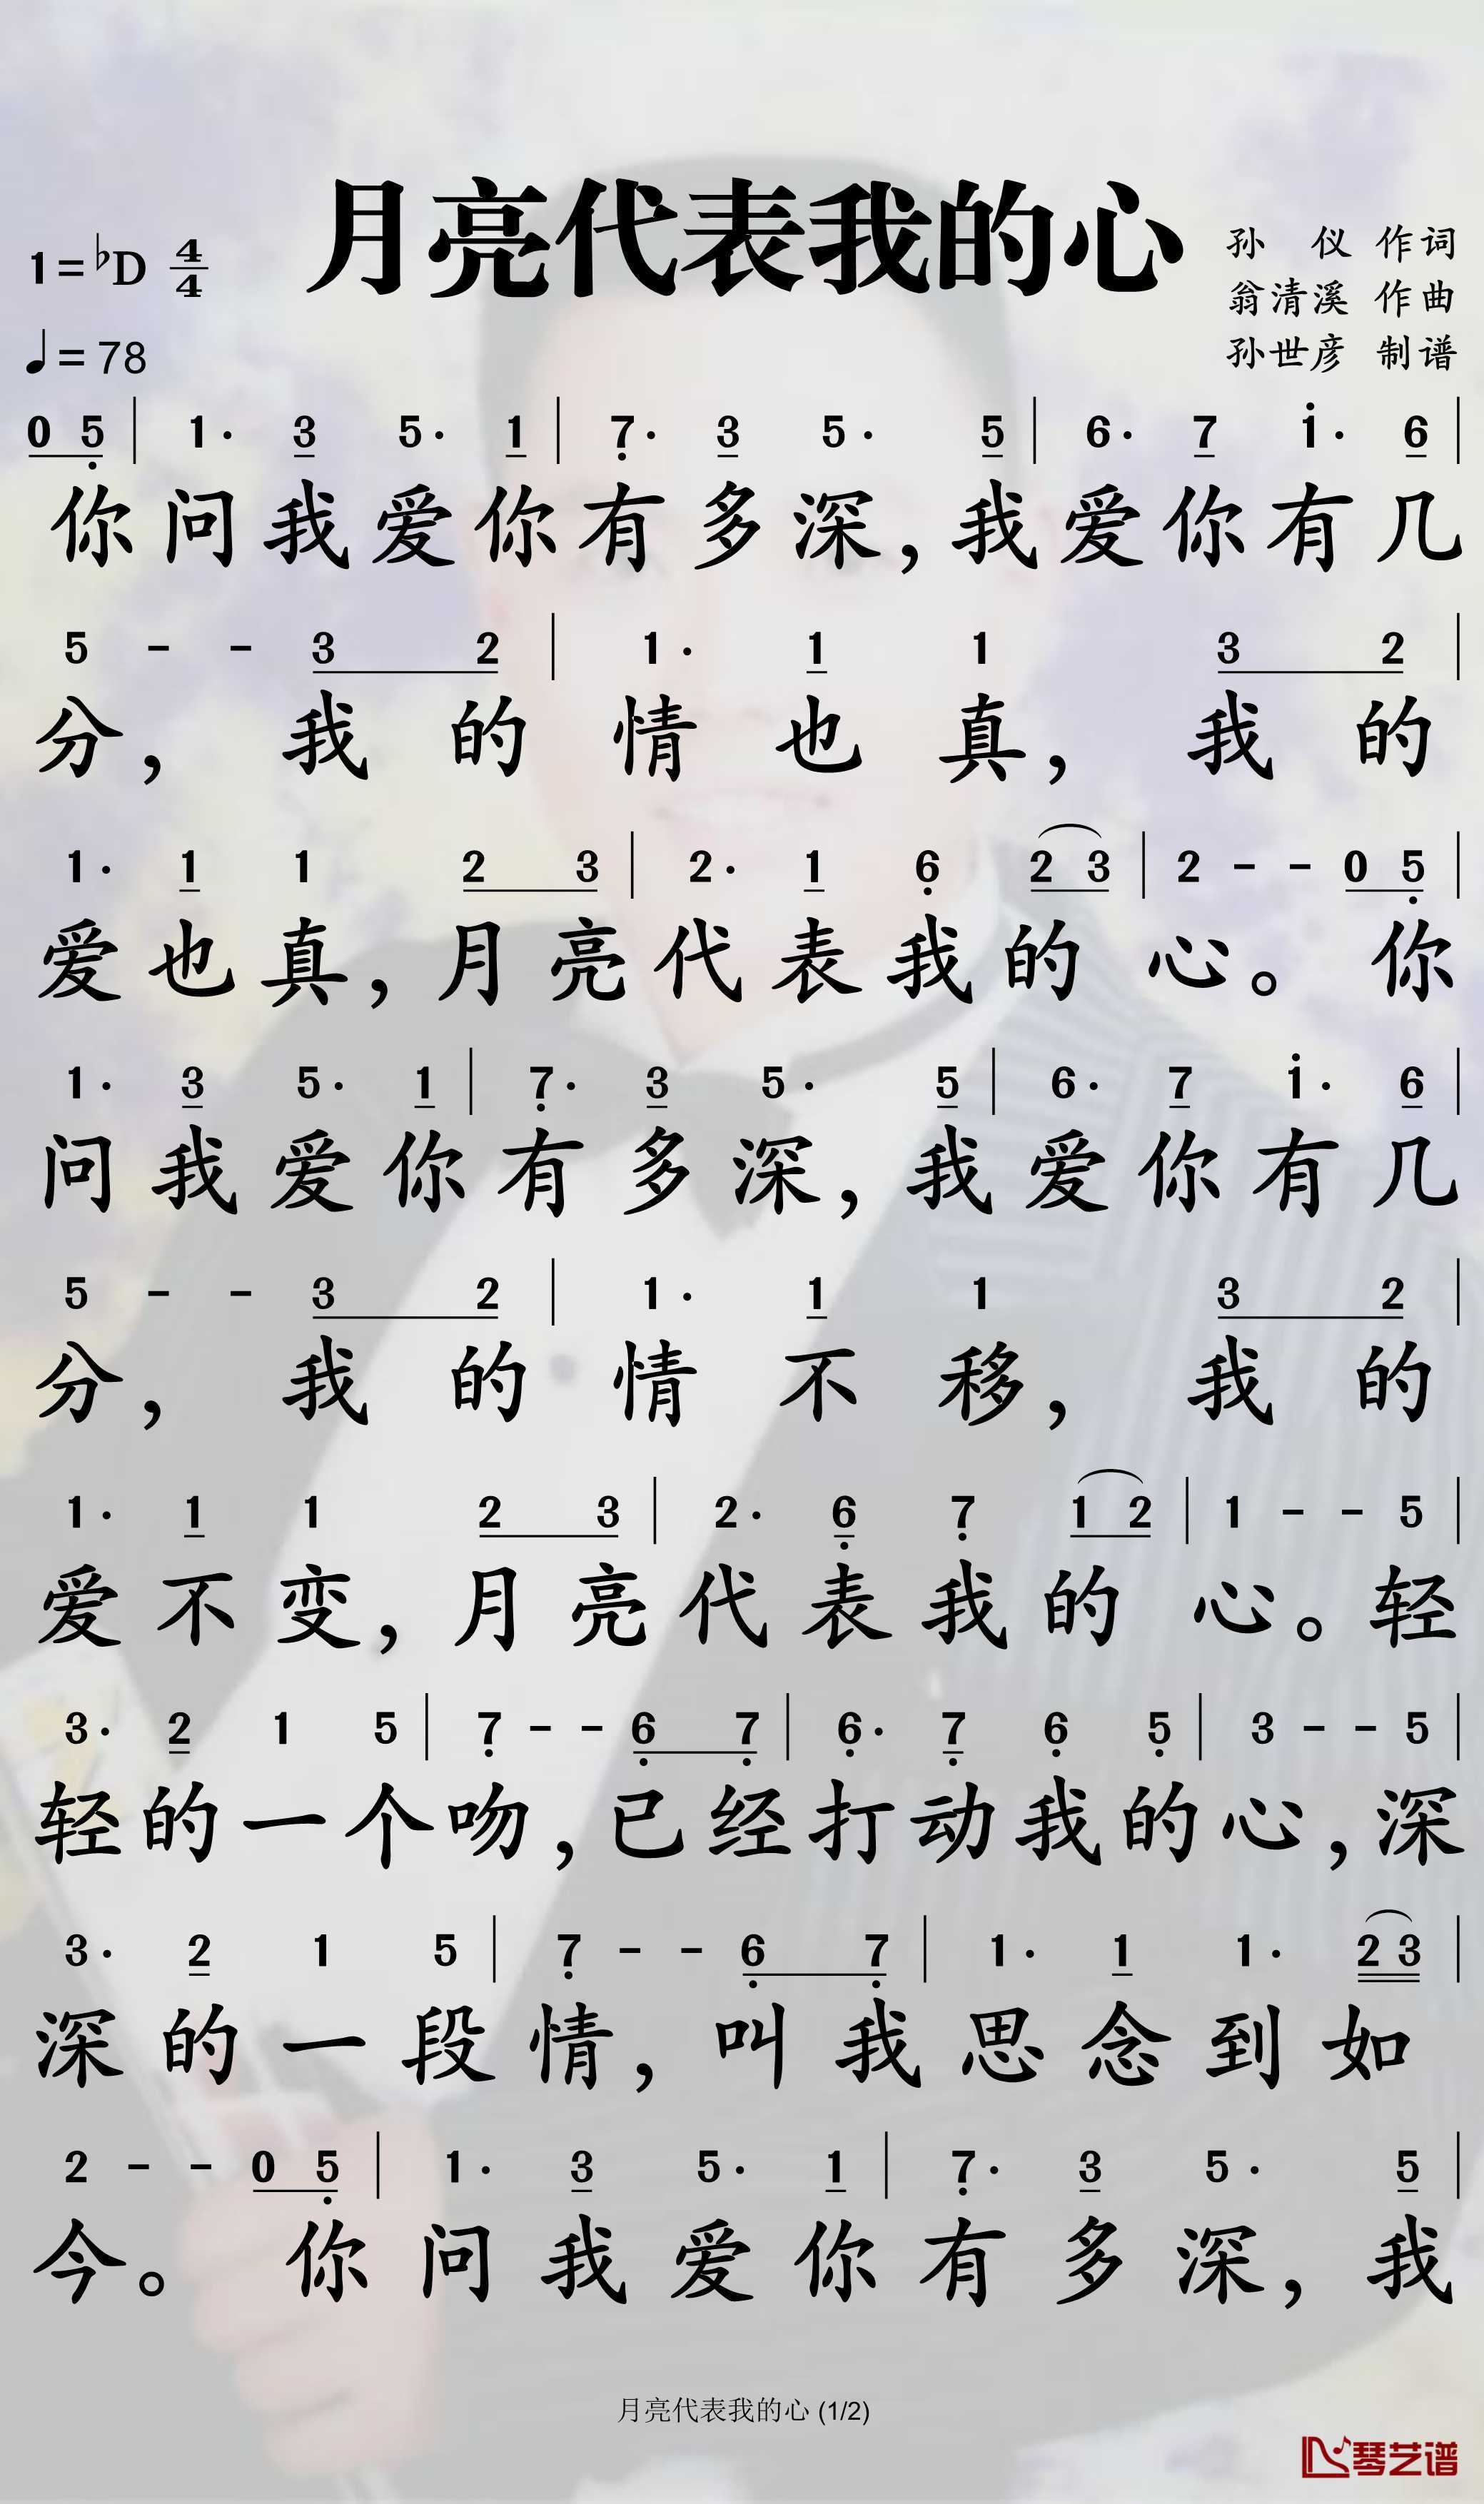 月亮代表我的心
1=♭D 4/4
♩=78
孙 仪 作词
翁清溪 作曲
孙世彦 制谱
0 5̣ | 1· 3 5· 1 | 7̣· 3 5· 5 | 6· 7 1̇· 6 |
你问我爱你有多深,我爱你有几
5 - - 3 2 | 1· 1 1 3 2 |
分, 我的情也真, 我的
1· 1 1 2 3 | 2· 1 6̣ 2 3 | 2 - - 0 5̣ |
爱也真,月亮代表我的心。 你
1· 3 5· 1 | 7̣· 3 5· 5 | 6· 7 1̇· 6 |
问我爱你有多深,我爱你有几
5 - - 3 2 | 1· 1 1 3 2 |
分, 我的情不移, 我的
1· 1 1 2 3 | 2· 6̣ 7̣ 1 2 | 1 - - 5 |
爱不变,月亮代表我的心。轻
3· 2 1 5 | 7̣ - - 6̣ 7̣ | 6̣· 7̣ 6̣ 5̣ | 3 - - 5 |
轻的一个吻,已经打动我的心,深
3· 2 1 5 | 7̣ - - 6̣ 7̣ | 1· 1 1· 2 3 |
深的一段情, 叫我思念到如
2 - - 0 5̣ | 1· 3 5· 1 | 7̣· 3 5· 5 |
今。 你问我爱你有多深,我
月亮代表我的心 (1/2)
琴艺谱